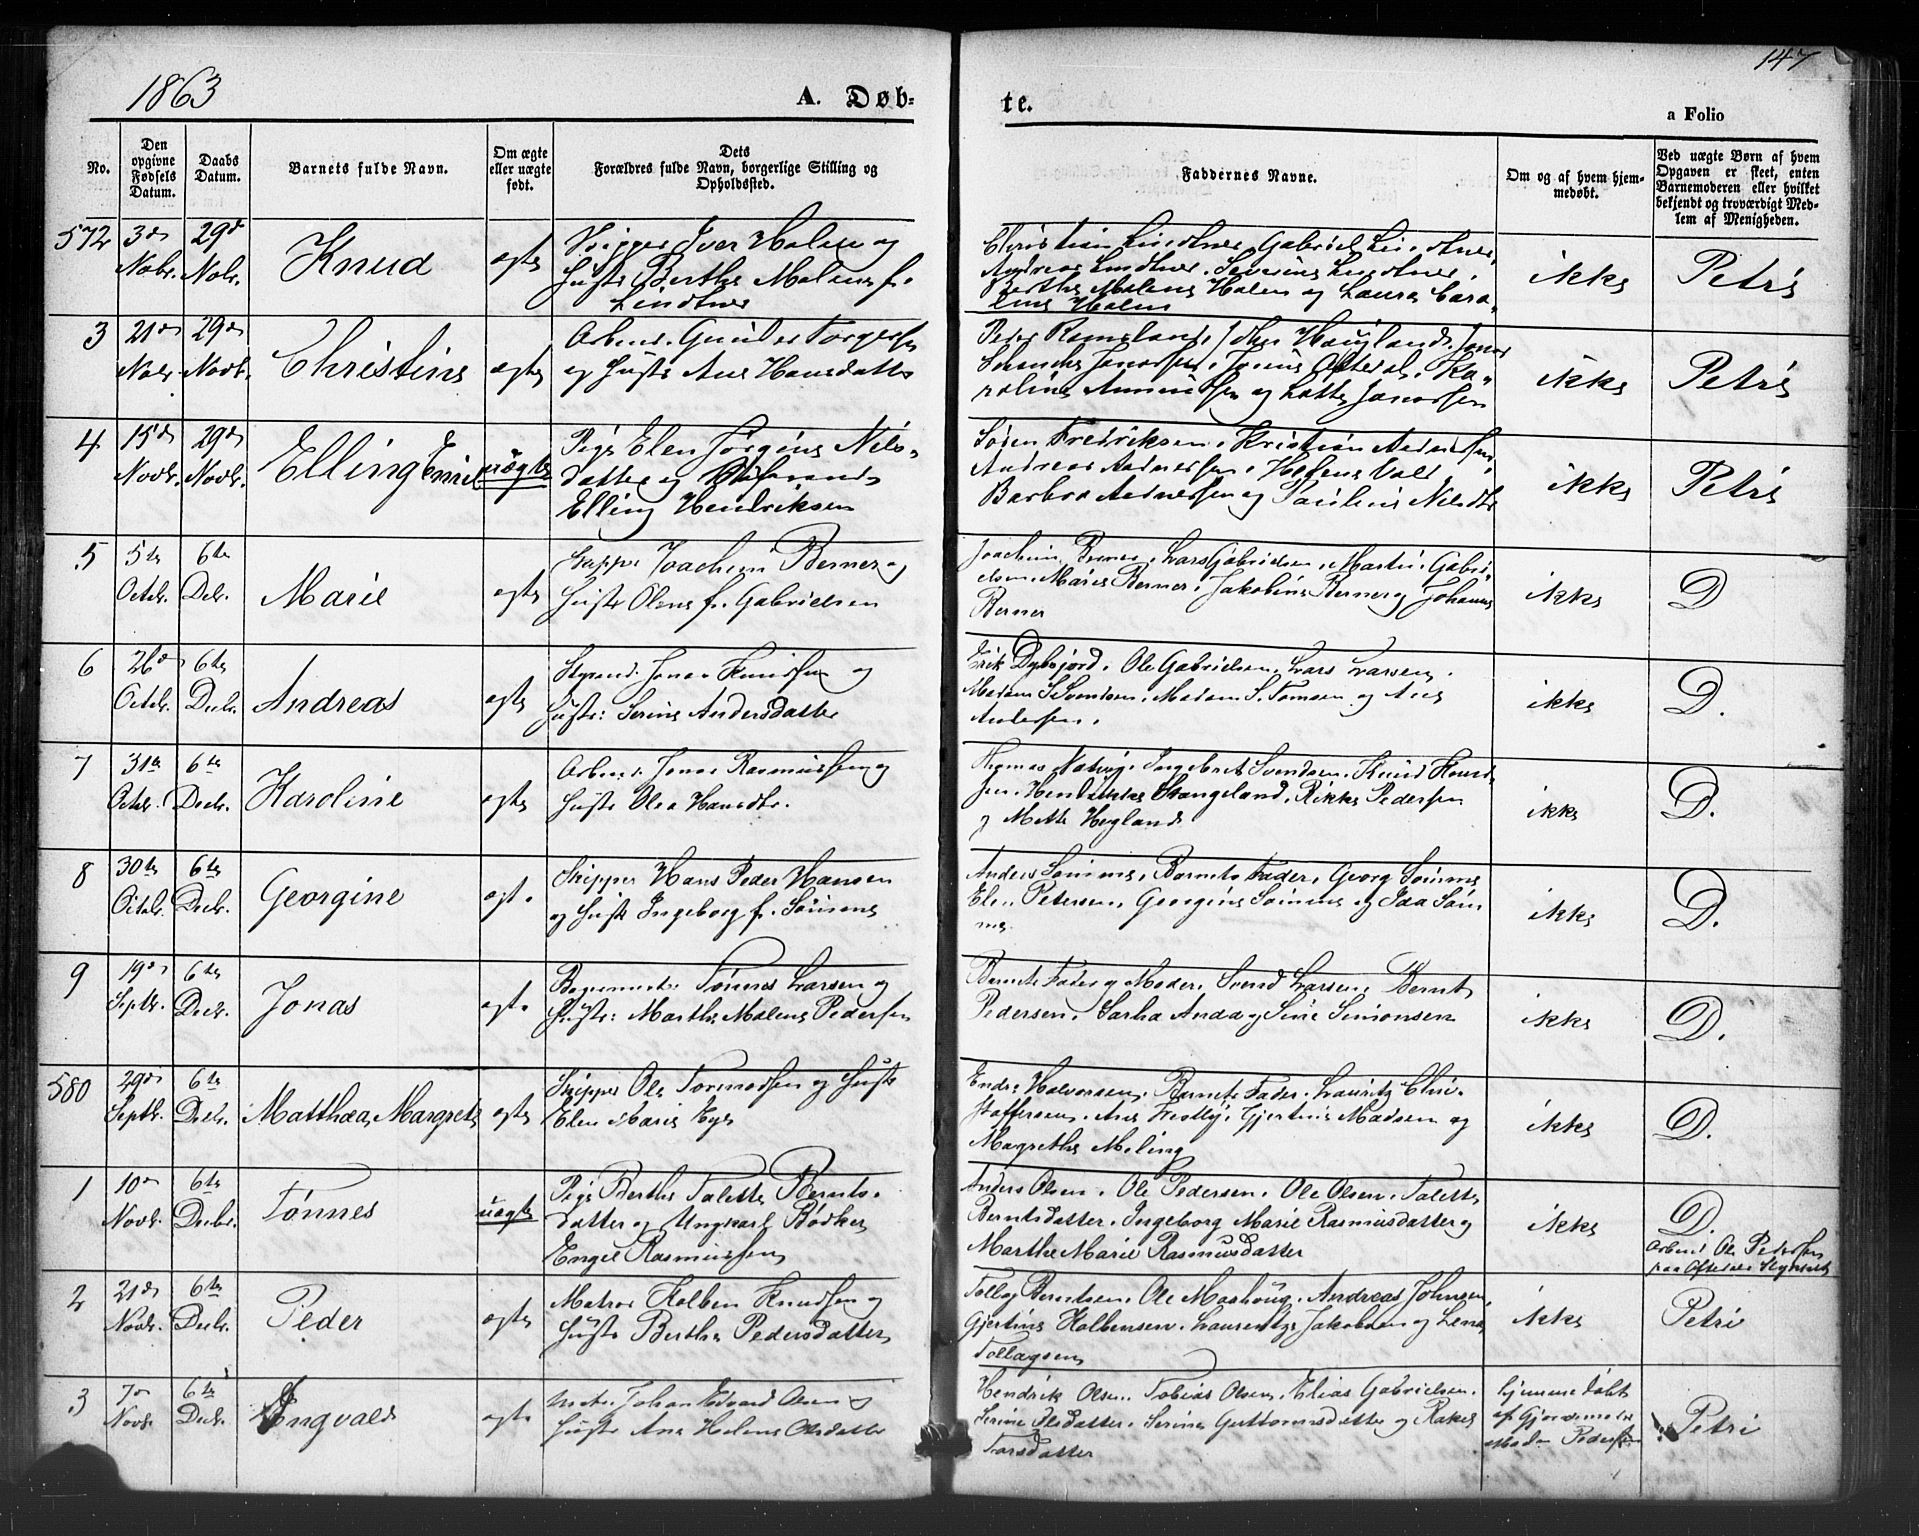 1863
A. Døb-
te.
147
a Folio
No.
Den opgivne Fødsels Datum.
Daabs Datum.
Barnets fulde Navn.
Om ægte eller uægte født.
Dets Forældres fulde Navn, borgerlige Stilling og Opholdssted.
Faddernes Navne.
Om og af hvem hjemmedøbt.
Ved uægte Børn af hvem Opgaven er skeet, enten Barnemoderen eller hvilket bekjendt og troværdigt Medlem af Menigheden.
572 3de Novbr. 29de Novbr. Knud ægte
Skipper Iver Holen og
Hustr Berthe Malene f.
Lindtner
Christian Lindtner, Gabriel Lindtner,
Andreas Lindtner, Severine Lindtner,
Berthe Malene Holen og Laura Caro-
line Holen
ikke Petri
3 21de Novbr. 29de Novbr. Christine ægte
Arbeid. Gunder Torgersen
og Hustr Ane Hansdatter
Peder Rameland, John Haugland, Jonas
Jonassen, Tonius Ofterdal, Ka-
roline Amundsen og Lotte Jonassen
ikke Petri
4 15de Novbr. 29de Novbr. Elling Emil uægte
Pige Elen Jørgine Nils-
datter og
Elling Hendriksen
Søren Fredriksen, Kristian Aadnessen,
Andreas Aadnessen, Helene Vold
Barbra Aadnessen og Pauline Nilsdtr
ikke Petri
5 5te Octbr. 6te Decbr. Marie ægte
Skipper Joachim Berner og
Hustr Olene f. Gabrielsen
Joachim Berner, Lars Gabrielsen, Martin Gabri-
elsen, Maries Berner, Jakobine Berner og Johanne
Berner
ikke D
6 26de Octbr. 6te Decbr. Andreas ægte
Styrmd. Jonas Knudsen og
Hustr: Serine Andersdatter
Erik Dybfjord, Ole Gabrielsen, Lars Larsen,
Madam S Svendsen, Madam S. Tomsen og Ane
Andersen.
ikke D.
7 31te Octbr. 6te Decbr. Karoline ægte
Arbeid. Jonas Rasmussen og
Hustr Olea Hansdtr.
Thomas Natvig, Ingebret Svendsen, Knud Knud-
sen, Hendrikke Stangeland, Rikke Pedersen
og Mette Hegland
ikke D.
8 30te Octbr. 6te Decbr. Georgine ægt.
Skipper Hans Peder Hansen
og Hustr Ingeborg f. Sømme
Anders Sømme, Barnets Fader, Georg Sømme
Elen Petersen, Georgine Sømme og Ida Søm-
me.
ikke D.
9 19de Septbr. 6te Decbr. Jonas ægt.
Tønnes Larsen og
Hustr: Marthe Malene Pedersen
Barnets Fader og Moder, Svend Larsen, Bernt
Pedersen, Sarha Anda og Sine Simonsen
ikke D.
580 29de Septbr. 6te Decbr. Matthæa Margrete ægte
Skipper Ole Tormodsen og Hustr
Elen Marie
Endre Halvorsen, Barnets Fader, Lauritz Chri-
stoffersen, Ane Trestby, Gjertine Madsen og
Magrethe Meling
ikke D.
1 10de Novbr. 6te Decbr. Tønnes uægte
Pige Berthe Talette Bernts-
datter og Ungkarl Bødker
Engel Rasmussen
Anders Olsen, Ole Pedersen, Ole Olsen, Talette
Berntsdatter, Ingeborg Marie Rasmusdatter og
Marthe Marie Rasmusdatter
ikke D.
Arbeid Ole Pedersen
paa
2 21de Novbr. 6te Decbr. Peder ægte
Matros Kolben Knudsen og
Hustr Berthe Pedersdatter
Tollag Berntsen, Ole Maahoug, Andreas Johnsen,
Gjertine Kolbensen, Laurentze Jakobsen og Lene
Tollagsen
ikke Petri
3 7de Novbr. 6te Decbr. Engvald ægte
Matr. Johan Edvard Olsen og
Hustr Ane Helene Olsdatter
Hendrik Olsen, Tobias Olsen, Elias Gabrielsen,
Serine Olsdatter, Serine Guttormsdatter og Rakel
Tarsdatter
hjemmedøbt
af Gjordemoder
Madm Pedersen
Petri